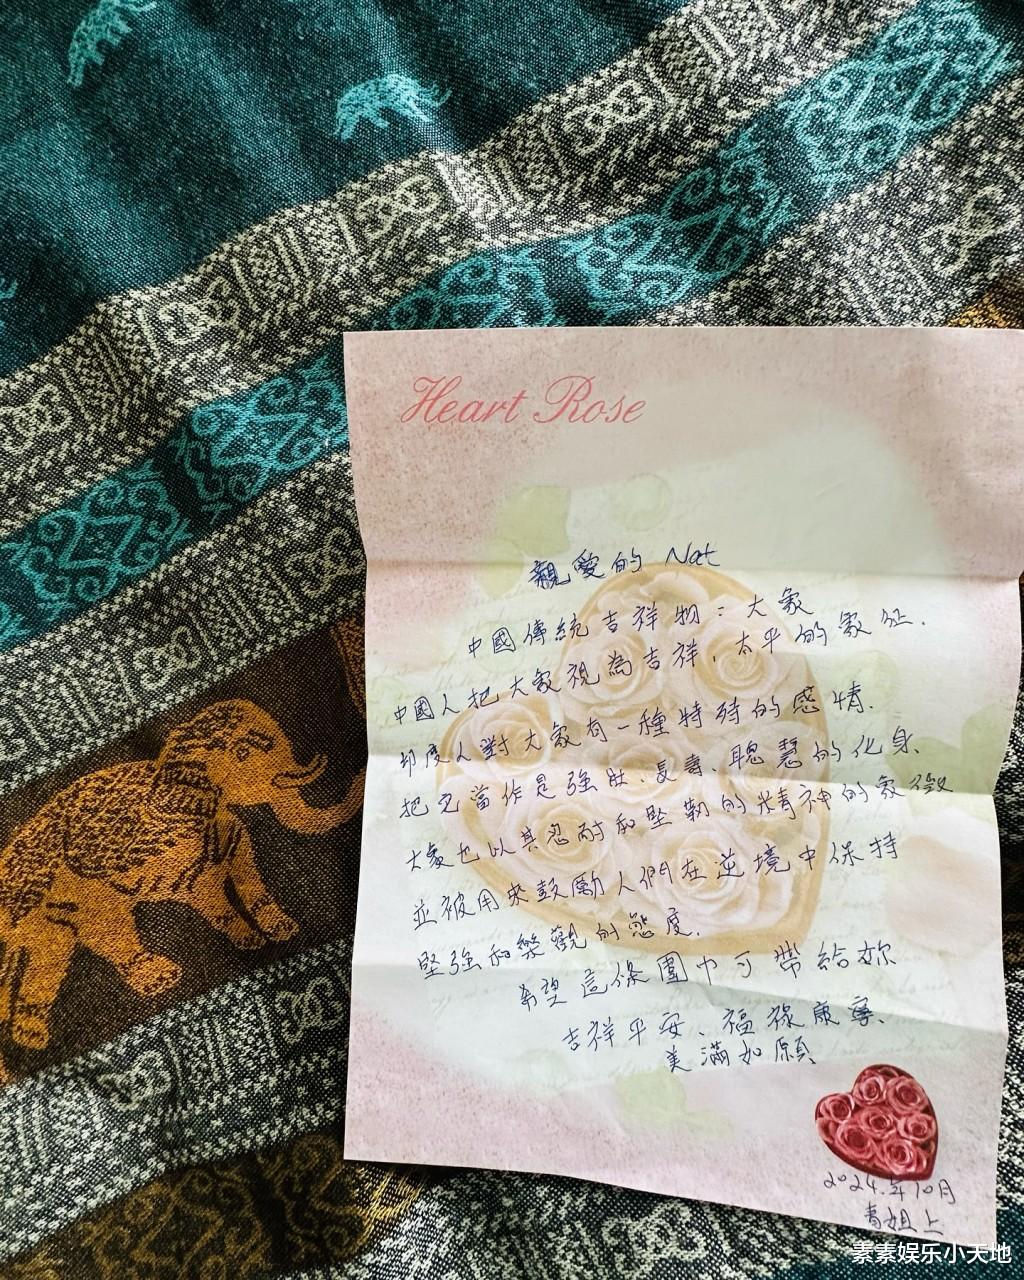 Heart Rose
親愛的 Nat
中國傳統吉祥物：大象
中國人把大象視為吉祥，太平的象征.
印度人對大象有一種特殊的感情.
把它當作是強壯、長壽、聰慧的化身、
大象也以其忍耐和堅韌的精神的象徵
並被用來鼓勵人們在逆境中保持
堅強和樂觀的態度.
希望這條圍巾可帶給妳
吉祥平安、福祿康寧、
美滿如願
2024.年10月
青姐上
素素娱乐小天地